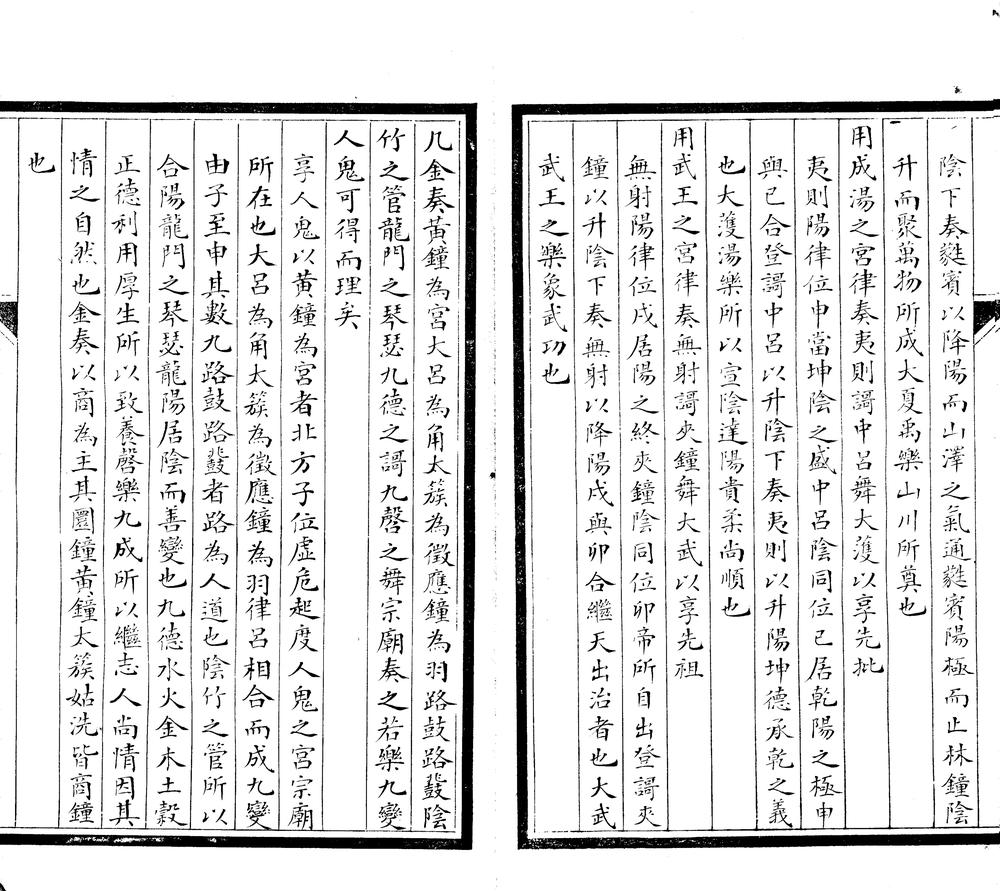 陰下奏蕤賓以降陽而山澤之氣通蕤賓陽極而止林鐘陰
升而聚萬物所成大夏禹樂山川所奠也
用成湯之宮律奏夷則謌中呂舞大濩以享先妣
夷則陽律位申當坤陰之盛中呂陰同位巳居乾陽之極申
與巳合登謌中呂以升陰下奏夷則以升陽坤德承乾之義
也大濩湯樂所以宣陰達陽貴柔尚順也
用武王之宮律奏無射謌夾鐘舞大武以享先祖
無射陽律位戌居陽之終夾鐘陰同位卯帝所自出登謌夾
鐘以升陰下奏無射以降陽戌與卯合繼天出治者也大武
武王之樂象武功也
凡金奏黃鐘為宮大呂為角太簇為徵應鐘為羽路鼓路鼗陰
竹之管龍門之琴瑟九德之謌九磬之舞宗廟奏之若樂九變
人鬼可得而理矣
享人鬼以黃鐘為宮者北方子位虛危起度人鬼之宮宗廟
所在也大呂為角太簇為徵應鐘為羽律呂相合而成九變
由子至申其數九路鼓路鼗者路為人道也陰竹之管所以
合陽龍門之琴瑟龍陽居陰而善變也九德水火金木土穀
正德利用厚生所以致養磬樂九成所以繼志人尚情因其
情之自然也金奏以商為主其圜鐘黃鐘太簇姑洗皆商鐘
也